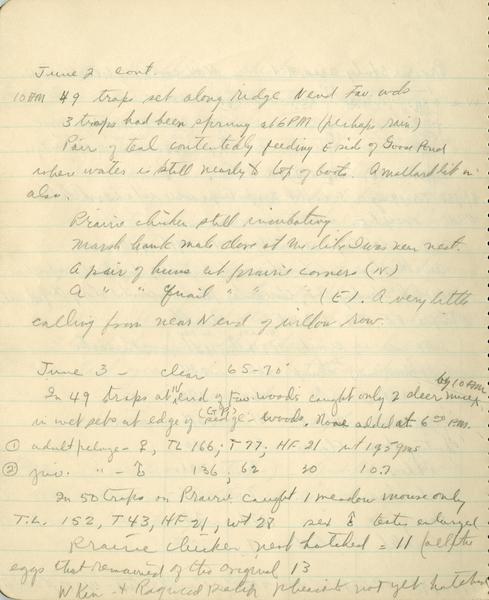 June 2 cont.
10 AM 49 traps set along ridge N end Fav wds
3 traps had been sprung at 6 PM (perhaps rain)
Pair of teal contentedly feeding E side of Goose Pond
when water is still nearly to top of boots. A mallard
also.
Prairie chicken still incubating
Marsh hawk male dove at me like I was near nest.
A pair of huns at prairie corners (N)
A " " Quail " " (E). A very little
calling from near N end of willow row.
June 3 - clear 65-70°
In 49 traps at N end of Fav. woods caught only 2 deer mice by 10 AM
in wet sets at edge of sedge - woods. None added at 6:00 PM.
① adult pelage - TL 166; T 77; HF 21 wt 19.5 gms
② juv. " - 136; 62 20 10.7
In 50 traps on Prairie caught 1 meadow mouse only
T.L. 152, T 43, HF 21, wt 28 sex testes enlarged
Prairie chicken nest hatched = 11 (all the
eggs that remained of the original 13
W Kin. + Ragweed patch pheasants not yet hatched